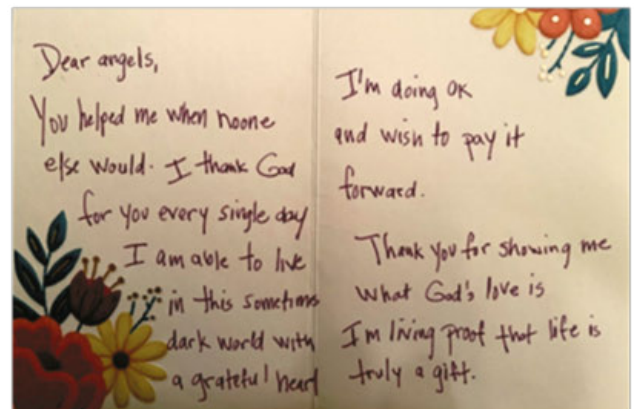 Dear angels,
You helped me when noone
else would. I thank God
for you every single day
I am able to live
in this sometimes
dark world with
a grateful heart
I'm doing OK
and wish to pay it
forward.
Thank you for showing me
what God's love is
I'm living proof that life is
truly a gift.